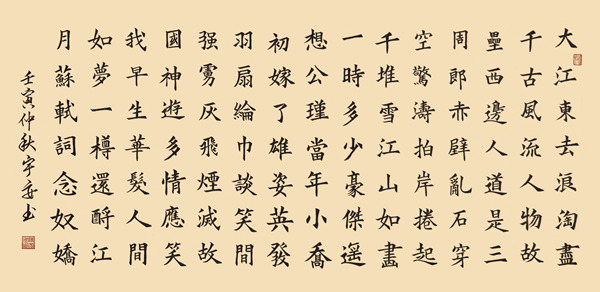 大江東去浪淘盡
千古風流人物故
壘西邊人道是三
周郎赤壁亂石穿
空驚濤拍岸捲起
千堆雪江山如畫
一時多少豪傑遥
想公瑾當年小喬
初嫁了雄姿英發
羽扇綸巾談笑間
强虜灰飛煙滅故
國神遊多情應笑
我早生華髮人間
如夢一樽還酹江
月蘇軾詞念奴嬌
壬寅仲秋宇书